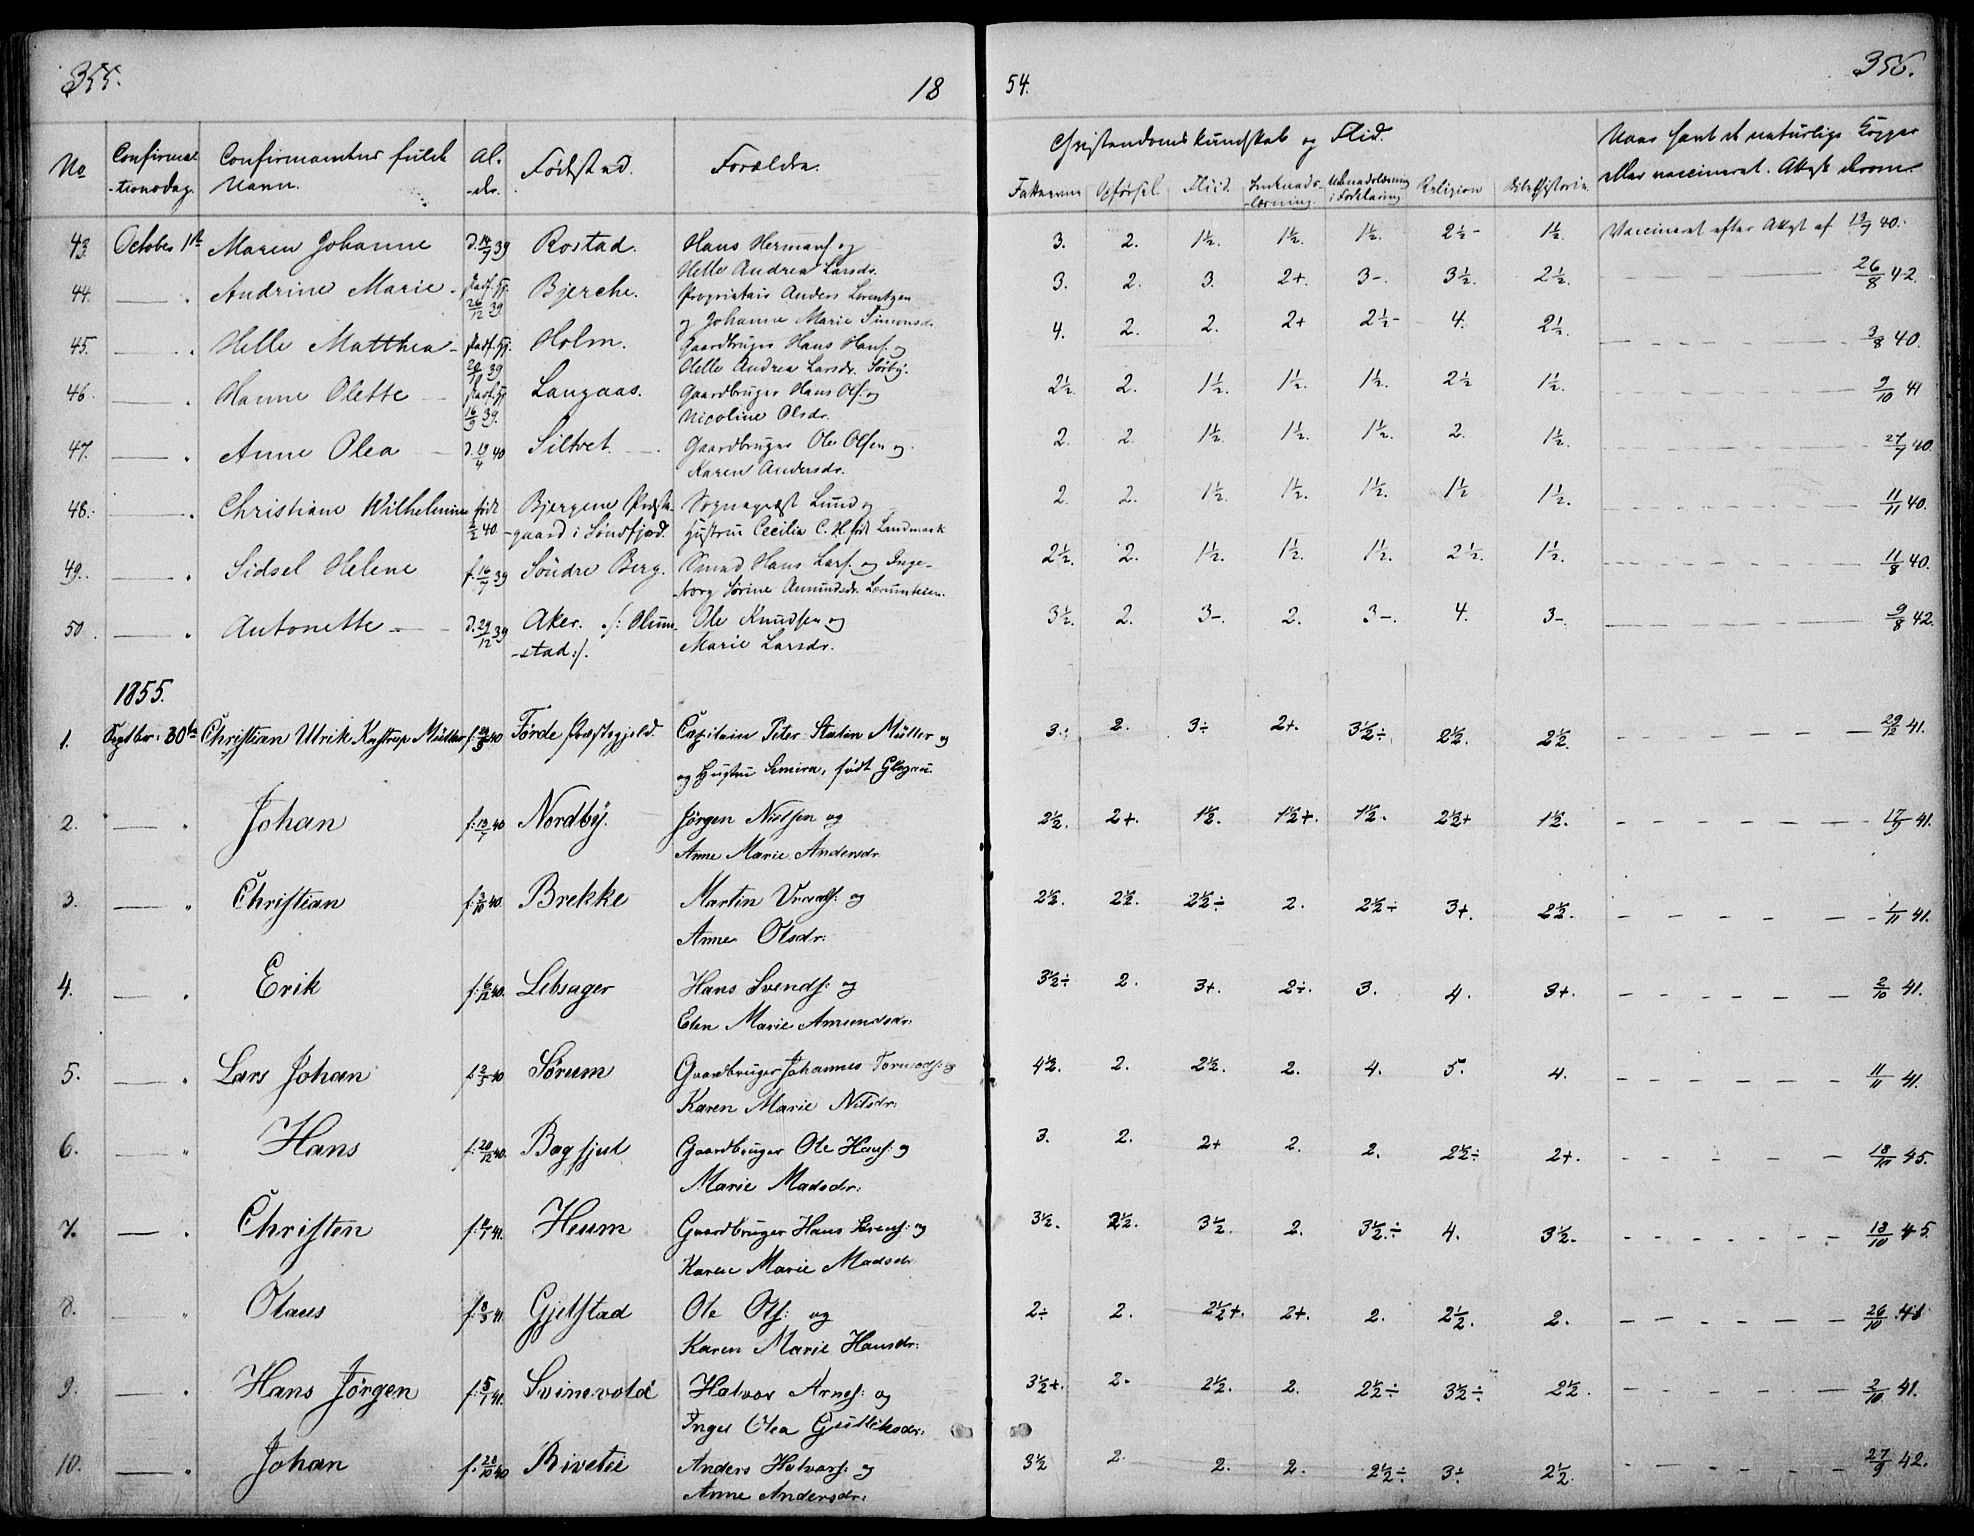 355. 18 54. 356.
No Confirma-tionsdag. Confirmantens fulde Navn. Al-der. Fødested. Forældre. Christendomskundskab og Flid. Naar havt de naturlige Kopper eller vaccineret. Attest derom.
Fatteevne Opførsel. Fliid. Religion Bibelhistorie.
43. October 1ste Maren Johanne d. 14/9 39 Rostad. Hans Hermans. og 3. 2. 1½. 1½. 1½. 2½- 1½. Vaccineret efter Attest af 19/7 40.
Helle Andrea Larsdr.
44. — " Andrine Marie - 26/12 39. Bjerche. Proprietair Anders Lorentzen 3. 2. 3. 2+. 3-. 3½. 2½. 26/8 42.
og Johanne Marie Simonsdr.
45. — " Helle Matthea - 39 Holm. Gaardbruger Hans Hans. og 4. 2. 2. 2+ 2½- 4. 2½. 3/8 40.
Helle Andrea Larsdr. Sørby.
46. — " Hanne Olette 16/9 39. Langaas. Gaardbruger Hans Ols. og 2½. 2. 1½. 1½. 1½. 2½ 1½. 9/10 41
Nicoline Olsdr.
47. — " Anne Olea d. 19/4 40 Siltvet. Gaardbruger Ole Olsen og 2. 2. 1½. 1½. 1½. 2. 1½. 27/7 40.
Karen Andersdr.
48. — " Christiane Wilhelmine født Bjergene Præste- Sognepræst Lund og 2. 2. 1½. 1½. 1½. 1½ 1½. 11/11 40.
2/2 40. -gaard i Søndfjord. Hustrue Cecilia C. H. født Landmark
49. — " Sidsel Helene f. 16/7 39 Søndre Berg. Smed Hans Lars. og Inge- 2½. 2. 1½. 1½. 1½. 2½. 1½. 11/8 40.
-borg Sørine Amundsdr. Lerumteien.
50. — " Antonette d. 29/12 39 Aker. /: Olum- Ole Knudsen og 3½. 2. 3-. 2. 3-. 4. 3-. 9/8 42.
-stad :/. Marie Larsdr.
1855.
1. Septbr: 30te Christian Ulrik Kastrup Müller 40 Førde Præstegjeld. Capitain Peter Statin Müller og 3. 2. 3÷ 2+. 3½÷ 2½. 2½. 29/12 41.
og Hustru Semira, født Glogau.
2. — " Johan f: 13/7 40 Nordby. Jørgen Nilsen og 2½. 2+. 1½. 1½+. 1½. 2½+ 1½. 17/9 41.
Anne Marie Andersdr.
3. — " Christian f: 3/10 40. Brekke Martin og 2½. 2½. 2½÷ 2. 2½÷ 3+. 2½. 1/11 41.
Anne Olsdr:
4. — " Erik f: 6/12 40. Lebsager Hans Svends: og 3½÷ 2. 3+. 2÷. 3. 4. 3+. 2/10 41.
Elen Marie Amundsdr:
5. — " Lars Johan f: 2/5 40 Sørum Gaardbruger Johannes Tormods: og 4½. 2. 2½. 2. 4. 5. 4. 11/11 41.
Karen Marie Nilsdr:
6. — " Hans f: 20/12 40. Bagfjed Gaardbruger Ole Hans: og 3. 2. 2+ 2. 2. 2½÷ 2+. 18/10 45.
Marie Madsdr:
7. — " Christen 41. Heum Gaardbruger Hans Sørens: og 3½. 2½. 3½. 2. 3½÷ 4. 3½. 18/10 45.
Karen Marie Madsdr.
8. — " Olaus f: 3/3 41 Gjelstad Ole Ols: og 2÷ 2. 2½+. 2+. 2. 2½. 2. 26/10 41
Karen Marie Hansdr:
9. — " Hans Jørgen f: 5/1 41. Svinevold Halvor Arnes: og 3½+. 2. 2½. 2. 2½÷ 3½÷ 2½. 2/10 41.
Inger Olea Gulliksdr:
10. — " Johan f: 20/10 40 Rivelie Anders Halvors: og 3½ 2. 2. 2. 2½÷ 3÷ 2½. 27/9 42.
Anne Andersdr: